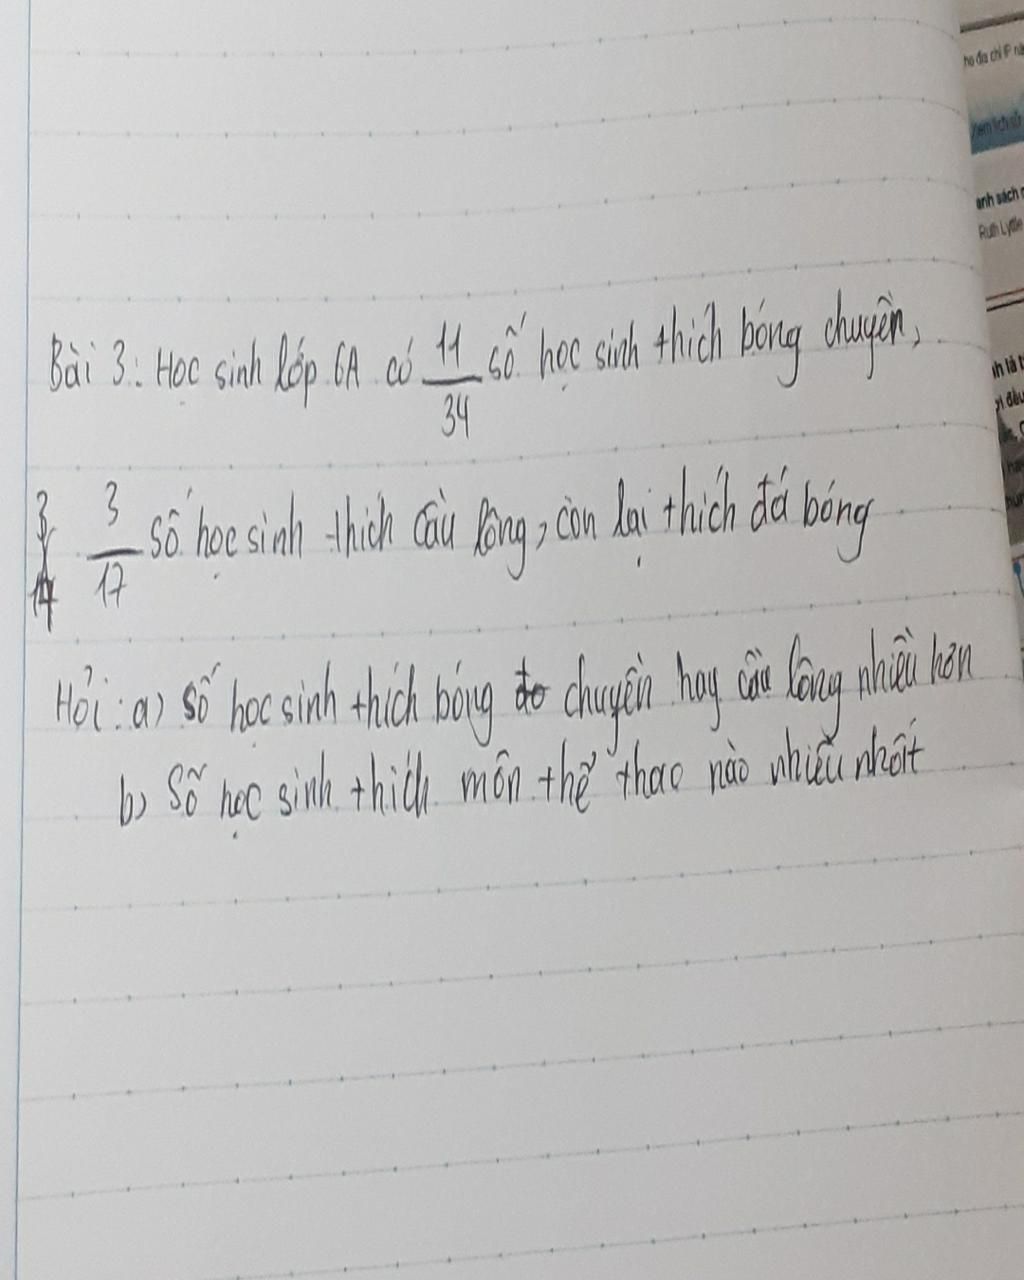 Bài 3: Học sinh lớp 6A có 11/34 số học sinh thích bóng chuyền,
3/17 số học sinh thích cầu lông, còn lại thích đá bóng
Hỏi: a) Số học sinh thích bóng chuyền hay cầu lông nhiều hơn
b) Số học sinh thích môn thể thao nào nhiều nhất
ho địa chỉ IP
Xem lịch sử
anh sách
Ruth Lyttle